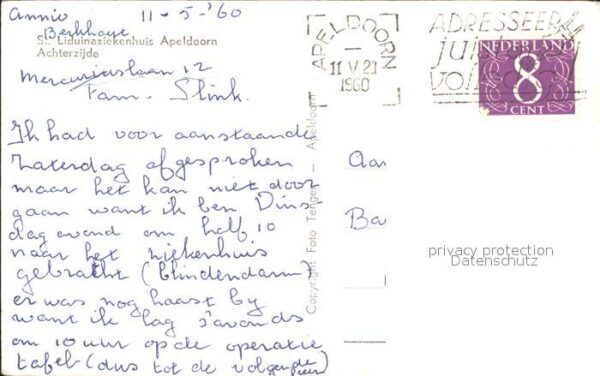 Annie 11-5-'60
Berkhout
St. Liduinaziekenhuis Apeldoorn
Achterzijde
Mercuriuslaan 12
Fam. Slink.
Ik had voor aanstaande
Zaterdag afgesproken
maar het kan niet door
gaan want ik ben Dins
dag avond om half 10
naar het ziekenhuis
gebracht (blindendarm)
er was nog haast by
want ik lag s'avonds
om 10 uur op de operatie
tafel (dus tot de volgende
keer)
Copyright Foto Tenge - Apeldoorn
APELDOORN
11 V 21
1960
ADRESSEER
VOL
NEDERLAND
8
CENT
Aan
Ba
privacy protection
Datenschutz